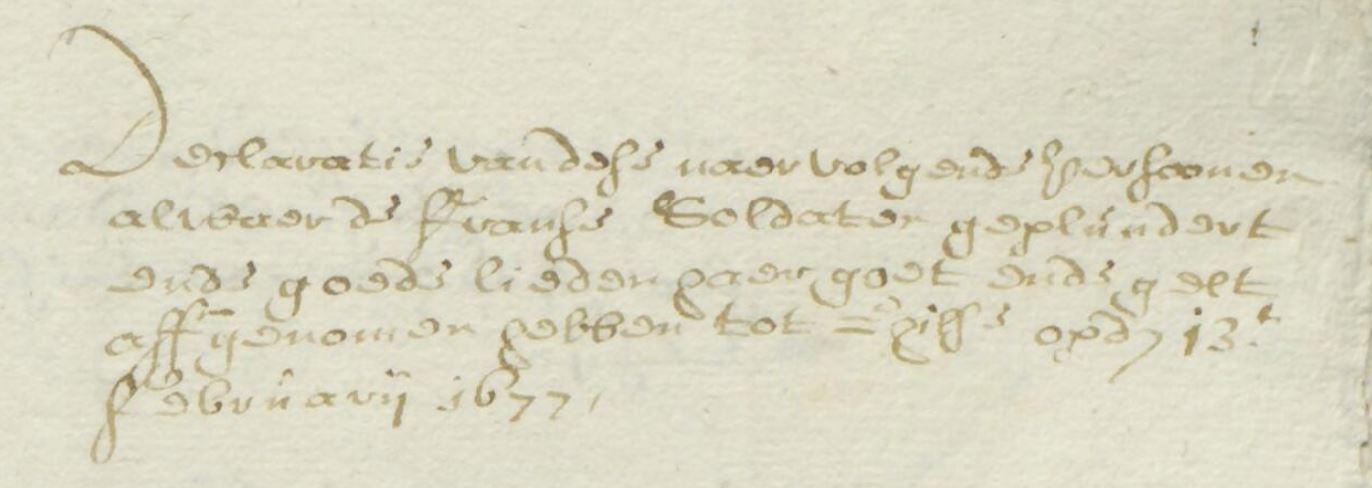 Declaratie van dese naervolgende Persoonen
alwaer de franse Soldaten geplundert
ende goede lieden haer goet ende gelt
aff genomen hebben tot = opde 13.t
februarij 1677,